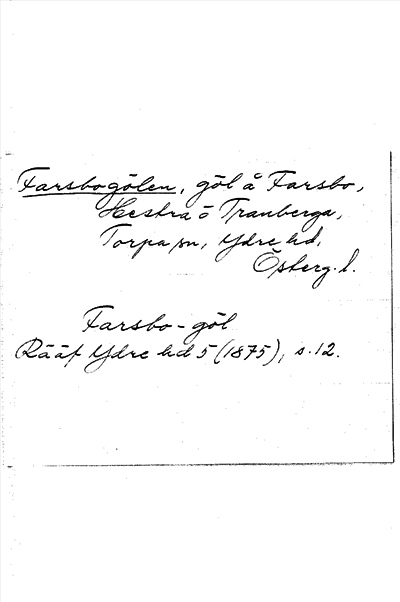 Farsbogölen, göl å Farsbo,
Hestra o Tranberga,
Torpa sn, Ydre hd,
Österg. l.
Farsbo-göl
Rääf Ydre hd 5 (1875), s. 12.